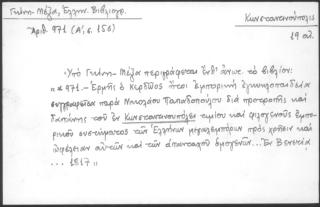 Γκίνη-Μέξα, Ἑλλην. Βιβλιογρ.
Κωνσταντινούπολις
Ἀριθ. 971 (Α', σ. 156)
19 αἰ.
Ὑπὸ Γκίνη-Μέξα περιγράφεται ἐνθ' ἀνωτ. τὸ βιβλίον:
"*971 - Ἑρμῆς ὁ Κερδῷος ἤτοι Ἐμπορικὴ ἐγκυκλοπαιδεία
συγγραφεῖσα παρὰ Νικολάου Παπαδοπούλου διὰ προτροπῆς καὶ
δαπάνης τοῦ ἐν Κωνσταντινουπόλει τιμίου καὶ φιλογενοῦς ἐμπο-
ρικοῦ συστήματος τῶν Ἑλλήνων μεγαλεμπόρων πρὸς χρῆσιν καὶ
ὠφέλειαν αὐτῶν καὶ τῶν ἁπανταχοῦ ὁμογενῶν... Ἐν Βενετίᾳ
... 1817"